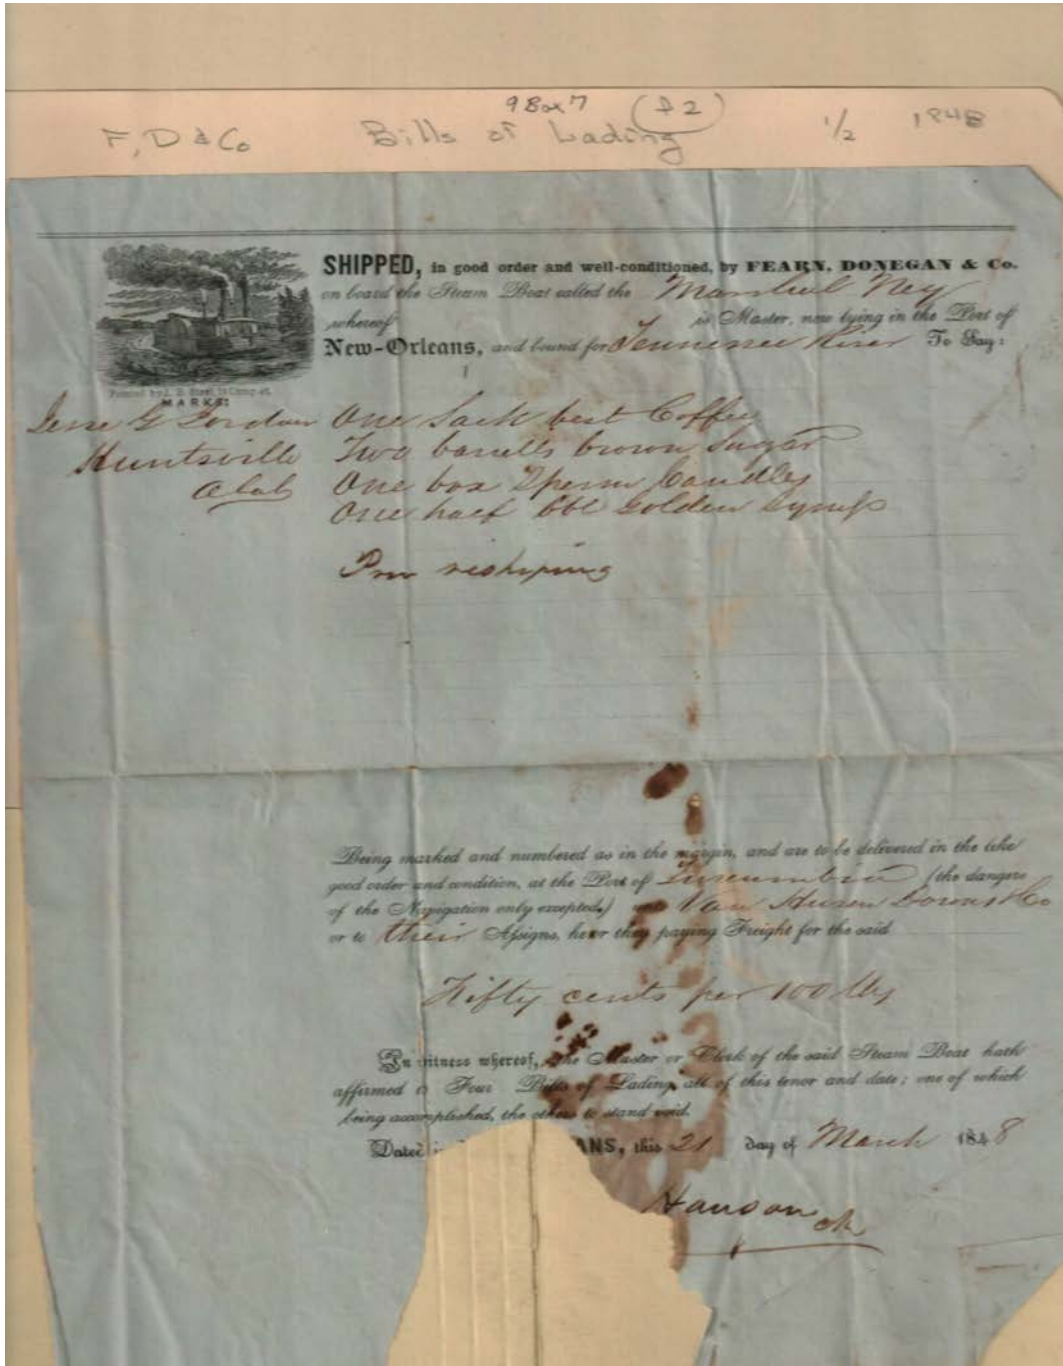 9 Box 7 (f 2)
F, D & Co Bills of Lading 1/2 1848
SHIPPED, in good order and well-conditioned, by FEARN, DONEGAN & Co.
on board the Steam Boat called the Marshal Ney
whereof is Master, now lying in the Port of
New-Orleans, and bound for Tennessee River To Say:
MARKS:
Jesse G Gordon One Sack best Coffee
Huntsville Two barrells brown Sugar
Alab One box Sperm Candles
One half bbl Golden Syrup
reshiping
Being marked and numbered as in the margin, and are to be delivered in the like
good order and condition, at the Port of Tuscumbia (the dangers
of the Navigation only excepted,) Van Co
or to their Assigns, he or they paying Freight for the said
Fifty cents per 100 lbs
In witness whereof, the Master or Clerk of the said Steam Boat hath
affirmed to Four Bills of Lading, all of this tenor and date; one of which
being accomplished, the others to stand void.
Dated ANS, this 21 day of March 1848
Hanson